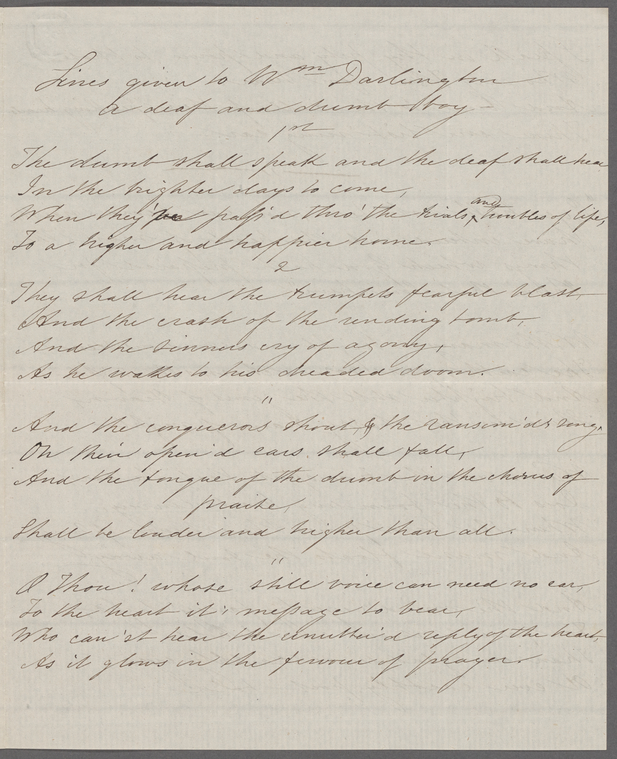 Lines given to Wm Darlington
a deaf and dumb boy
1st
The dumb shall speak and the deaf shall hear
In the brighter days to come,
When they've pass'd thro' the trials and troubles of life,
To a higher and happier home.
2
They shall hear the trumpets fearful blast
And the crash of the rending tomb,
And the sinners cry of agony,
As he wakes to his dreaded doom.
"
And the conquerors shout, & the ransom'ds song,
On their open'd ears shall fall,
And the tongue of the dumb in the chorus of
praise,
Shall be louder and higher than all.
"
O Thou! whose still voice can need no ear,
To the heart it's message to bear,
Who can'st hear the unutter'd reply of the heart,
As it glows in the fervour of prayer.